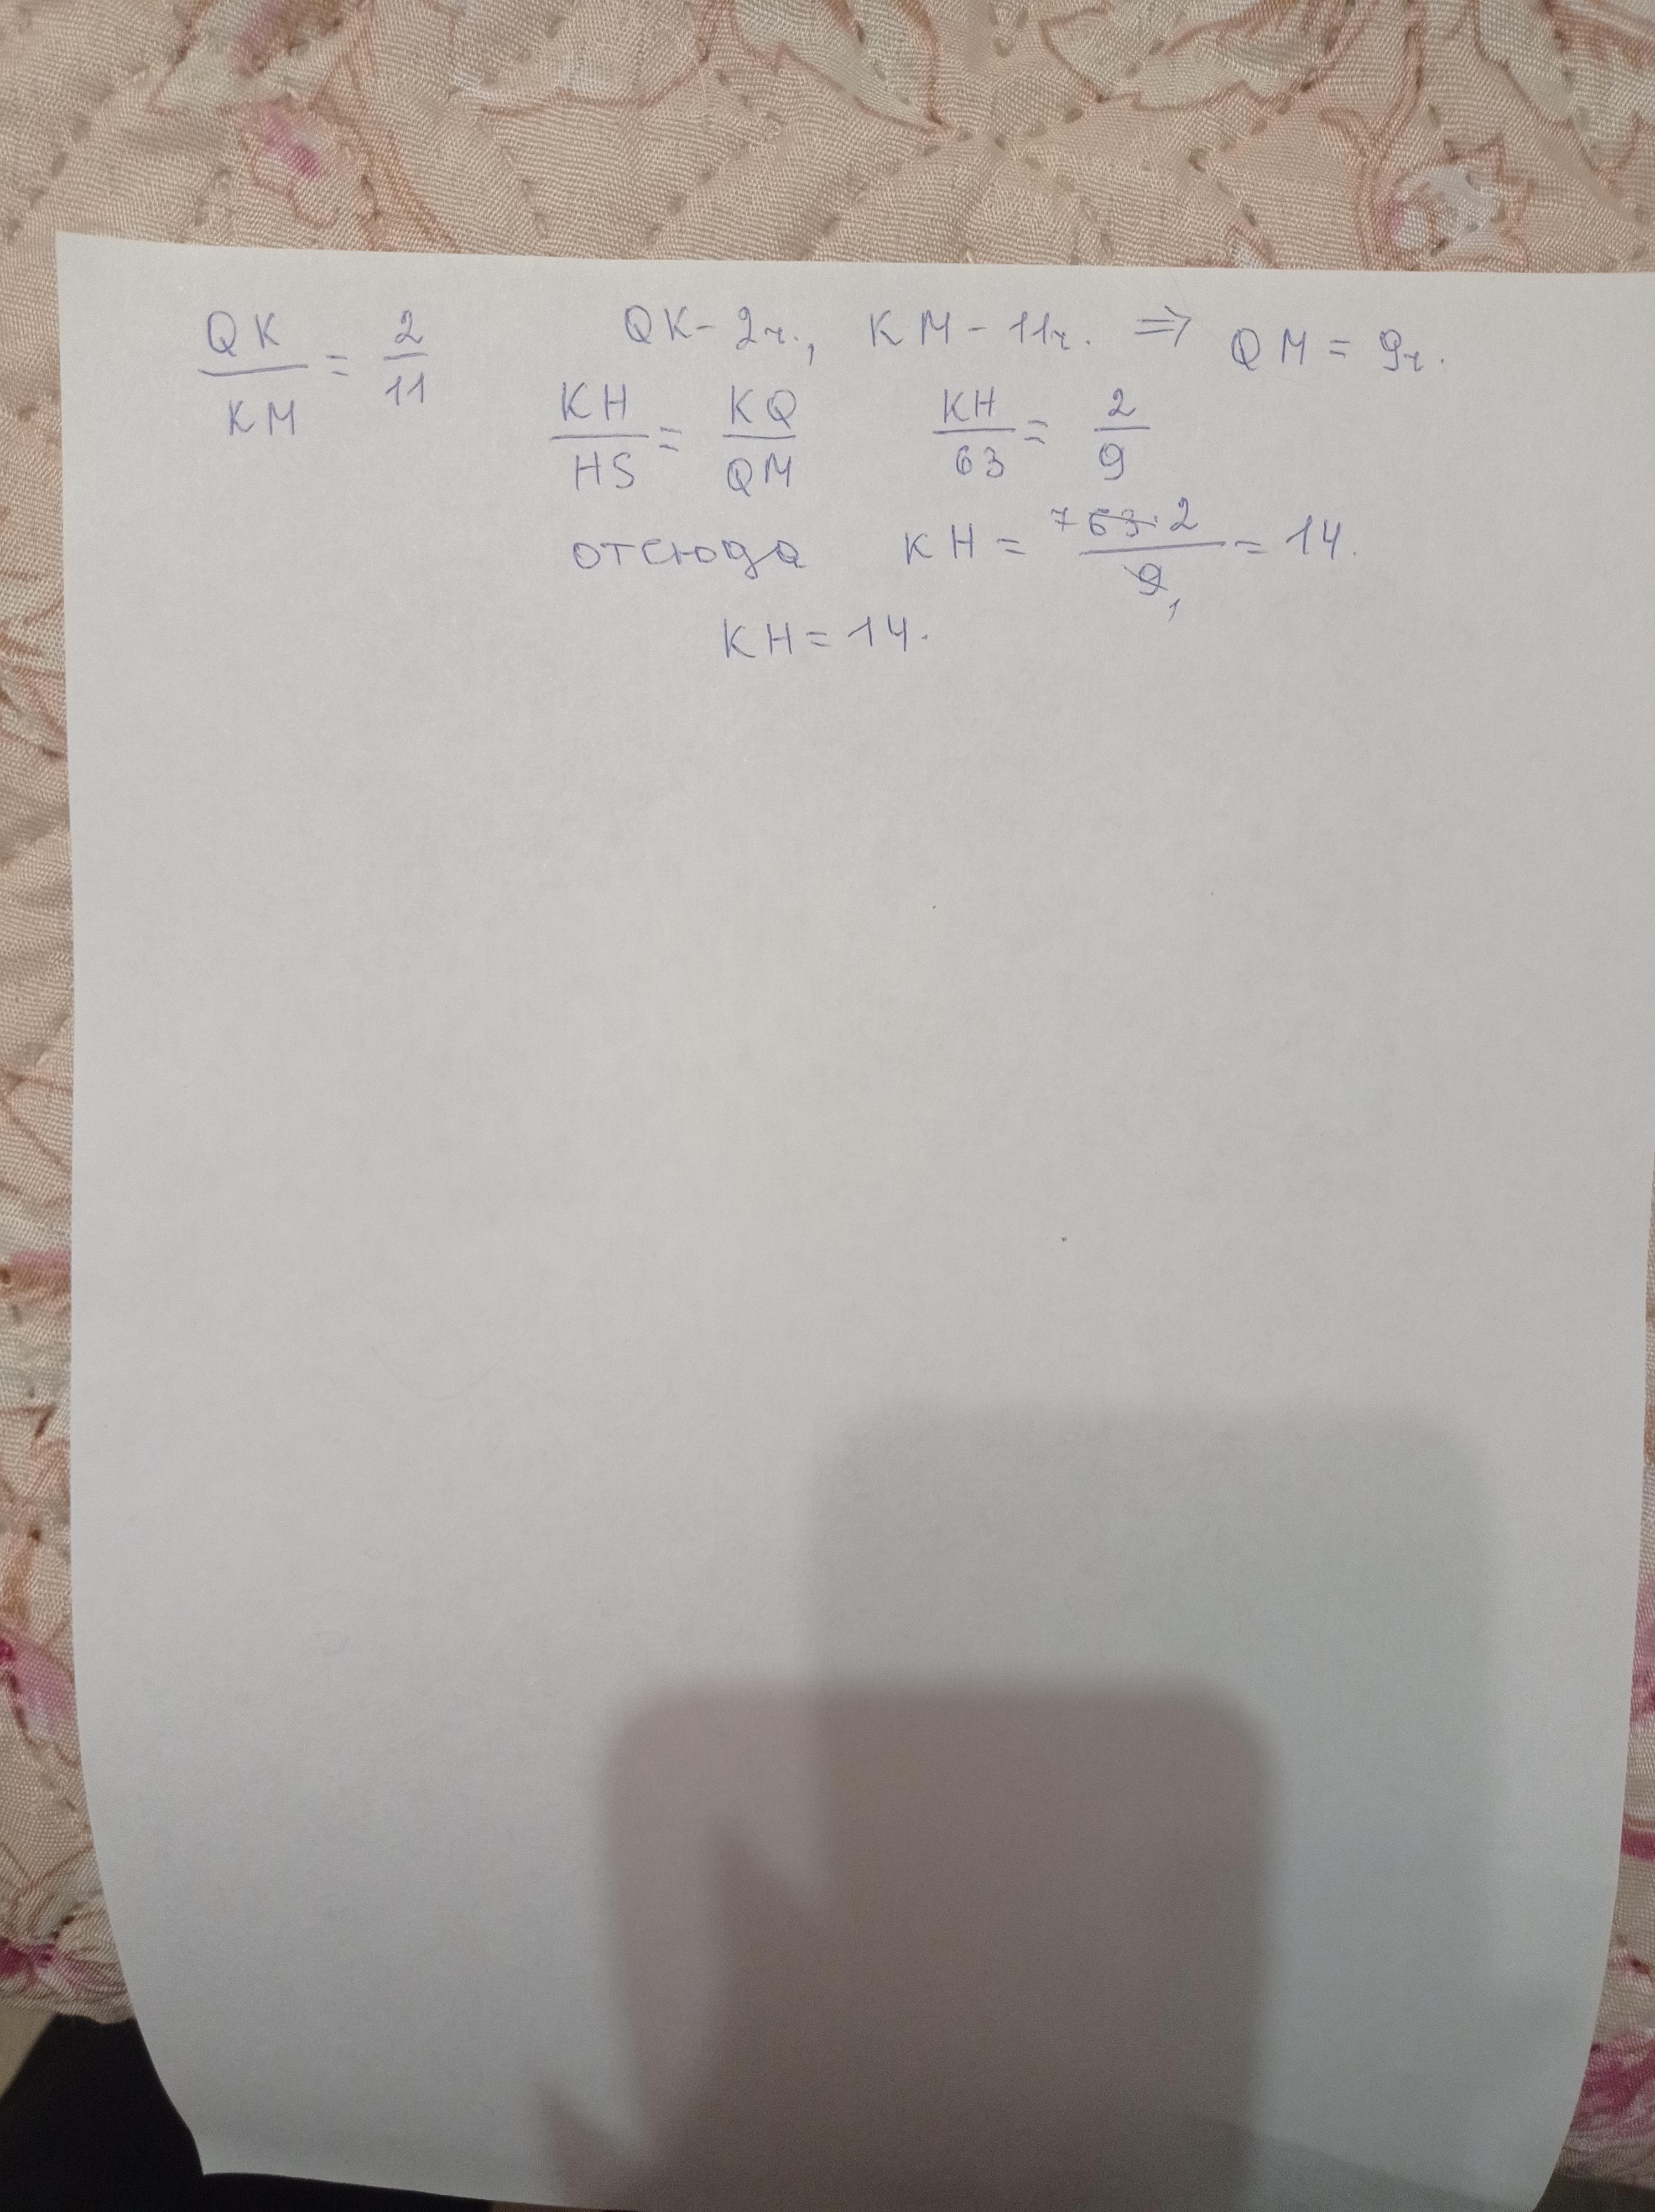 QK/KM = 2/11 QK - 2ч., KM - 11ч. ⇒ QM = 9ч.
KH/HS = KQ/QM KH/63 = 2/9
отсюда KH = 7 63·2/9 1 = 14.
KH = 14.